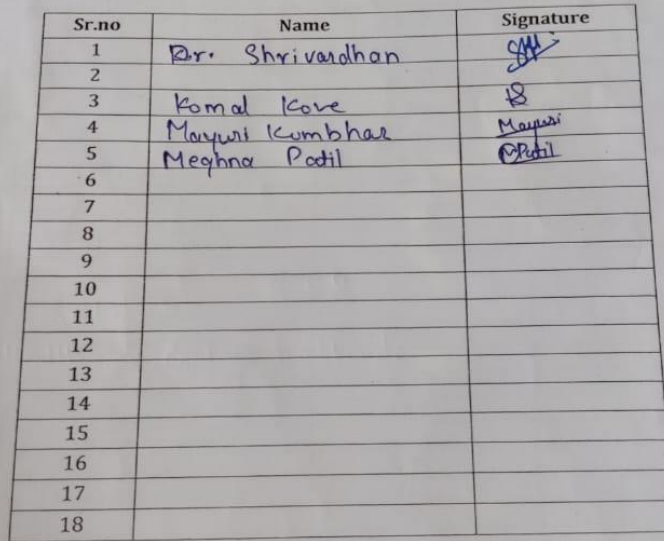 Sr.no Name Signature
1 Dr. Shrivardhan
2
3 Komal Kore
4 Mayuri Kumbhar Mayuri
5 Meghna Patil MPatil
6
7
8
9
10
11
12
13
14
15
16
17
18